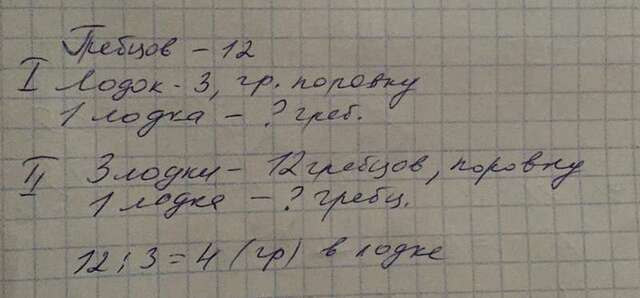 Гребцов - 12
I Лодок - 3, гр. поровну
1 лодка - ? греб.
II 3 лодки - 12 гребцов, поровну
1 лодка - ? гребц.
12 : 3 = 4 (гр) в лодке